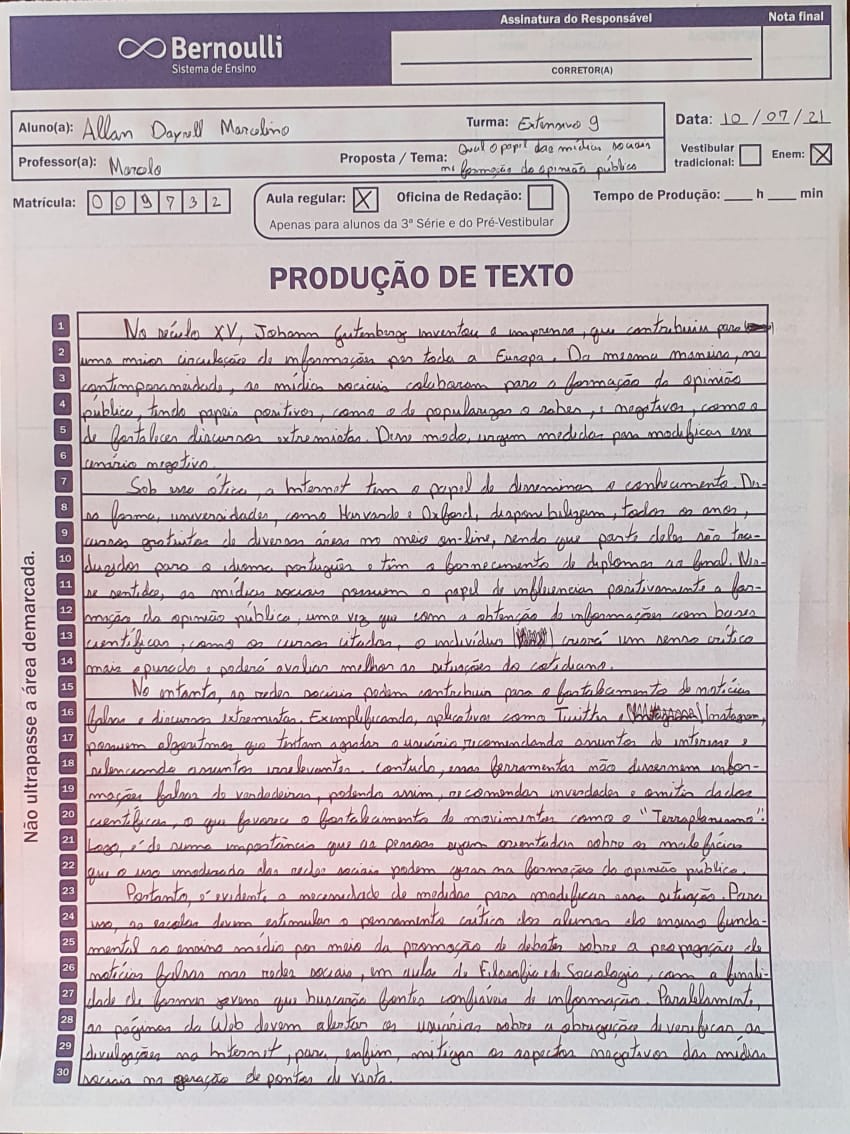 Assinatura do Responsável
Nota final
Bernoulli
Sistema de Ensino
CORRETOR(A)
Aluno(a): Allan Dayrell Marcolino
Turma: Extensivo 9
Data: 10/07/21
Professor(a): Marcelo
Proposta / Tema: Qual o papel das mídias sociais
na formação da opinião pública
Vestibular tradicional:
Enem: X
Matrícula: 009732
Aula regular: X Oficina de Redação:
Apenas para alunos da 3ª Série e do Pré-Vestibular
Tempo de Produção: ___ h ___ min
PRODUÇÃO DE TEXTO
Não ultrapasse a área demarcada.
1 No século XV, Johann Gutenberg inventou a imprensa, que contribuiu para
2 uma maior circulação de informações por toda a Europa. Da mesma maneira, na
3 contemporaneidade, as mídias sociais colaboram para a formação da opinião
4 pública, tendo papeis positivos, como o de popularizar o saber, e negativos, como o
5 de fortalecer discursos extremistas. Desse modo, urgem medidas para modificar esse
6 cenário negativo.
7 Sob essa ótica, a Internet tem o papel de disseminar o conhecimento. Des-
8 sa forma, universidades, como Harvard e Oxford, disponibilizam, todos os anos,
9 cursos gratuitos de diversas áreas no meio on-line, sendo que parte deles são tra-
10 duzidos para o idioma português e têm o fornecimento de diplomas ao final. Nes-
11 se sentido, as mídias sociais possuem o papel de influenciar positivamente a for-
12 mação da opinião pública, uma vez que com a obtenção de informações com bases
13 científicas, como os cursos citados, o indivíduo criará um senso crítico
14 mais apurado e poderá avaliar melhor as situações do cotidiano.
15 No entanto, as redes sociais podem contribuir para o fortalecimento de notícias
16 falsas e discursos extremistas. Exemplificando, aplicativos como Twitter e Instagram,
17 possuem algoritmos que tentam agradar o usuário recomendando assuntos de interesse e
18 silenciando assuntos irrelevantes. Contudo, essas ferramentas não discernem infor-
19 mações falsas de verdadeiras, podendo assim, recomendar inverdades e omitir dados
20 científicos, o que favorece o fortalecimento de movimentos como o "Terraplanismo".
21 Logo, é de suma importância que as pessoas sejam orientadas sobre os malefícios
22 que o uso moderado das redes sociais podem gerar na formação da opinião pública.
23 Portanto, é evidente a necessidade de medidas para modificar essa situação. Para
24 isso, as escolas devem estimular o pensamento crítico dos alunos do ensino funda-
25 mental ao ensino médio por meio da promoção de debates sobre a propagação de
26 notícias falsas nas redes sociais, em aulas de Filosofia e de Sociologia, com a finali-
27 dade de formar jovens que buscarão fontes confiáveis de informação. Paralelamente,
28 as páginas da Web devem alertar os usuários sobre a obrigação de verificar as
29 divulgações na Internet, para, enfim, mitigar os aspectos negativos das mídias
30 sociais na geração de pontos de vista.